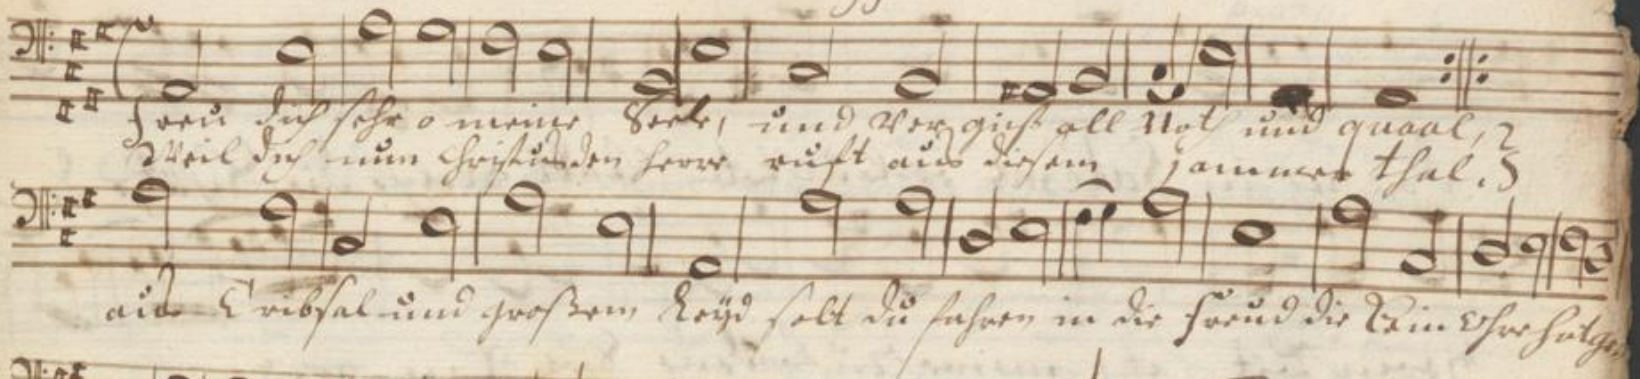 Freu dich sehr o meine Seele, und Vergiß all Noth und quaal,
Weil dich nun Christus den herre ruft aus diesem jammer thal.
aus Tribsal und großem Leyd solt du fahren in die Freud die kein Ohre hat ge